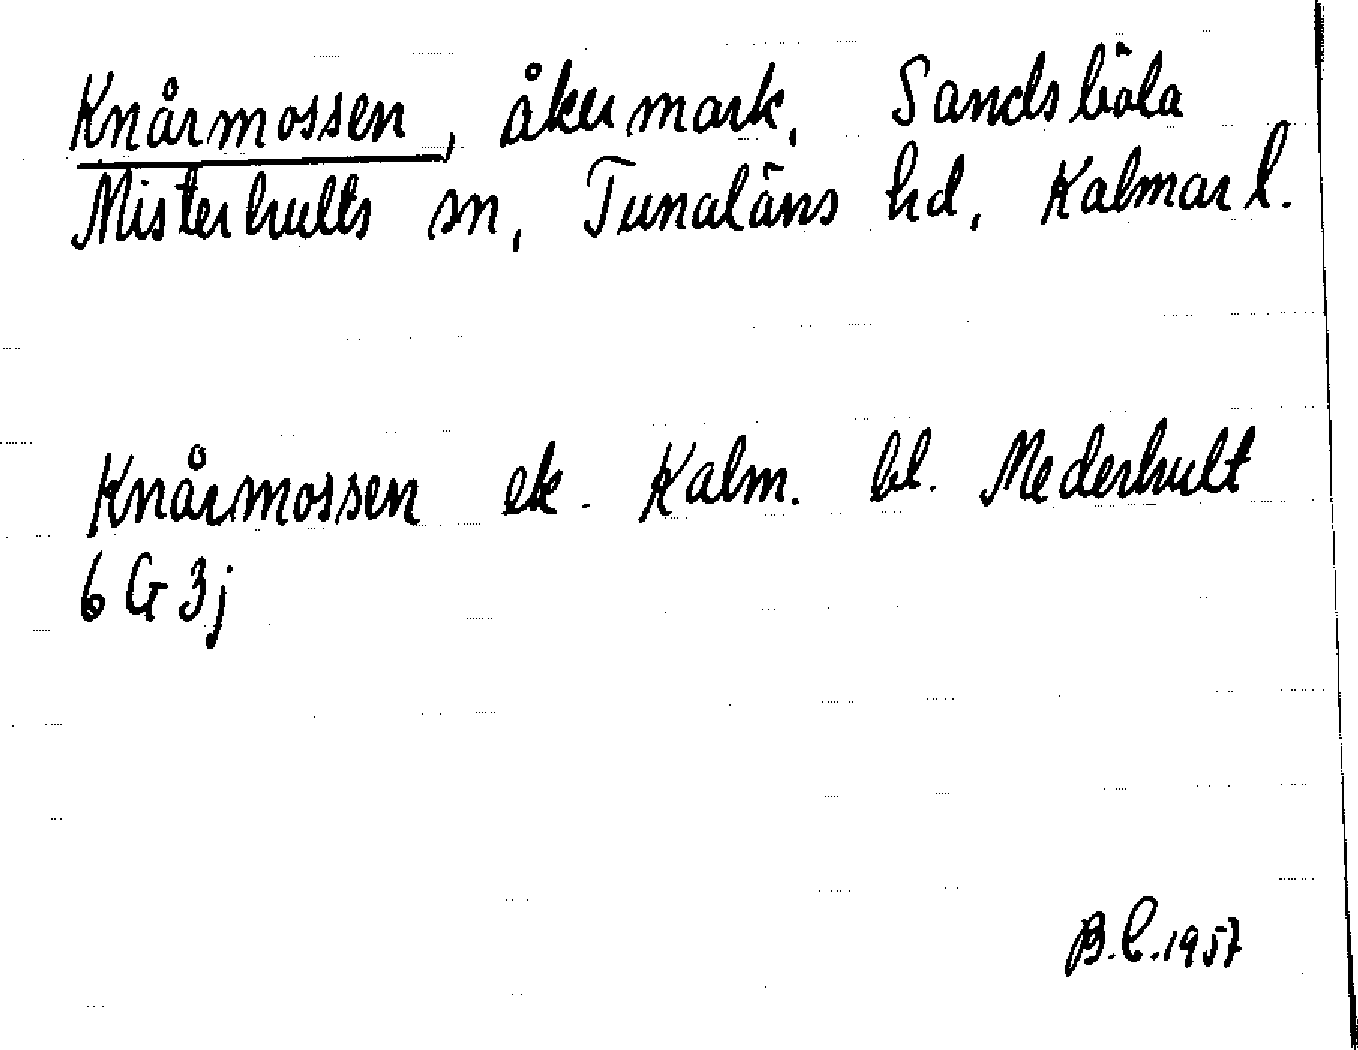 Knårmossen, åkermark, Sandsböla
Misterhults sn, Tunaläns hd, Kalmar l.
Knårmossen ek. Kalm. bl. Mederhult
6 G 3j
B.L. 1957